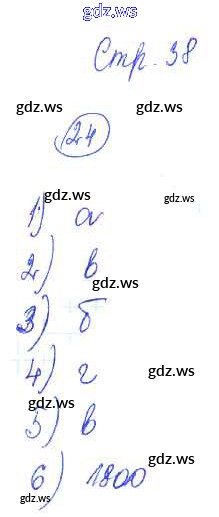 gdz.ws
Стр. 38
gdz.ws gdz.ws
24
gdz.ws
1) а
gdz.ws
2) в
gdz.ws
3) б
4) г gdz.ws
gdz.ws
5) в
gdz.ws
6) 1800
gdz.ws